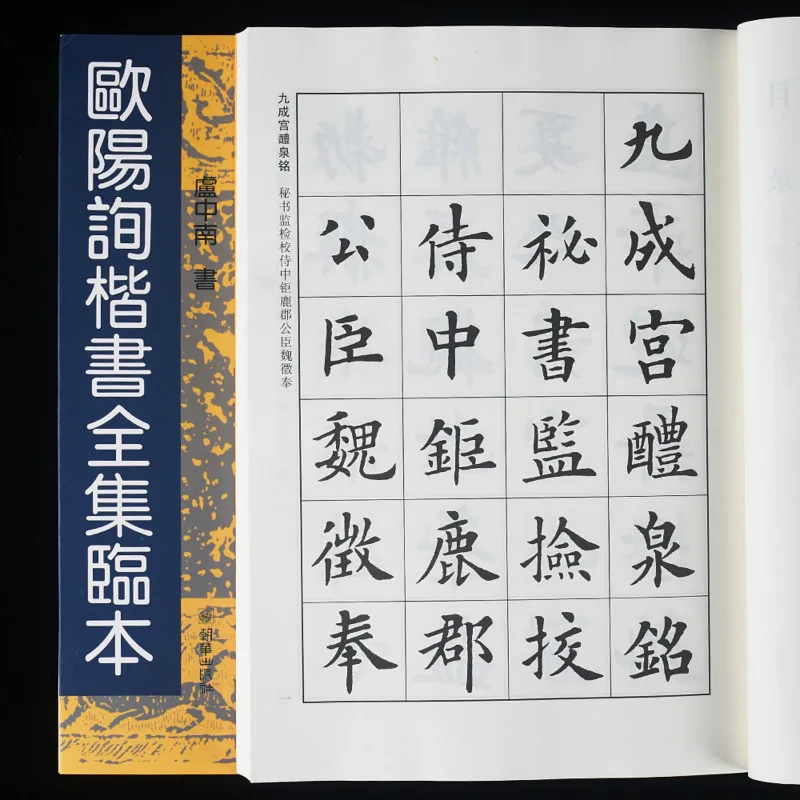 歐陽詢楷書全集臨本
盧中南 書
朝華出版社
九成宫醴泉铭 秘书监检校侍中钜鹿郡公臣魏徵奉
九成宮醴泉銘
祕書監撿挍
侍中鉅鹿郡
公臣魏徵奉
一